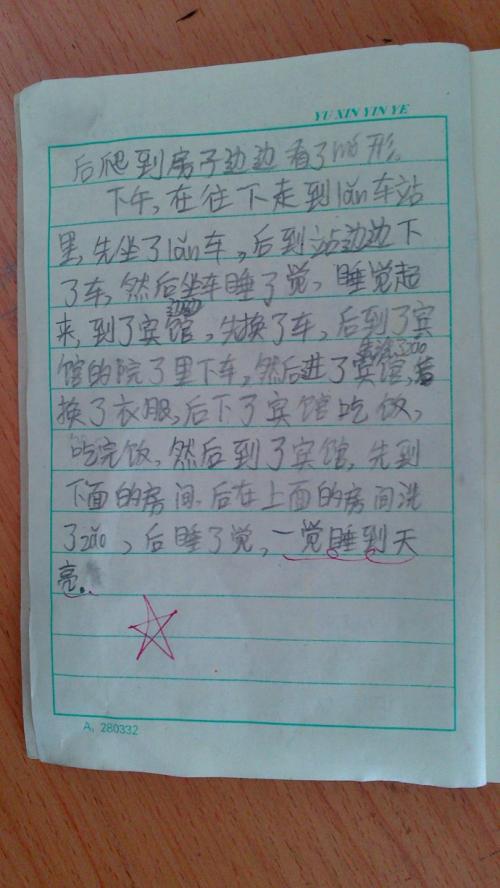 YU XIN YIN YE
后爬到房子边边看了 形。
下午,在往下走到lǎn车站
里,先坐了lǎn车,后到站边边下
了车,然后坐车睡了觉,睡觉起
来,到了宾馆,先换了车,后到了宾
馆的院了里下车,然后进了宾馆,
换了衣服,后下了宾馆吃饭,
吃完饭,然后到了宾馆,先到
下面的房间,后在上面的房间洗
了zǎo,后睡了觉,一觉睡到天
亮。
A, 280332